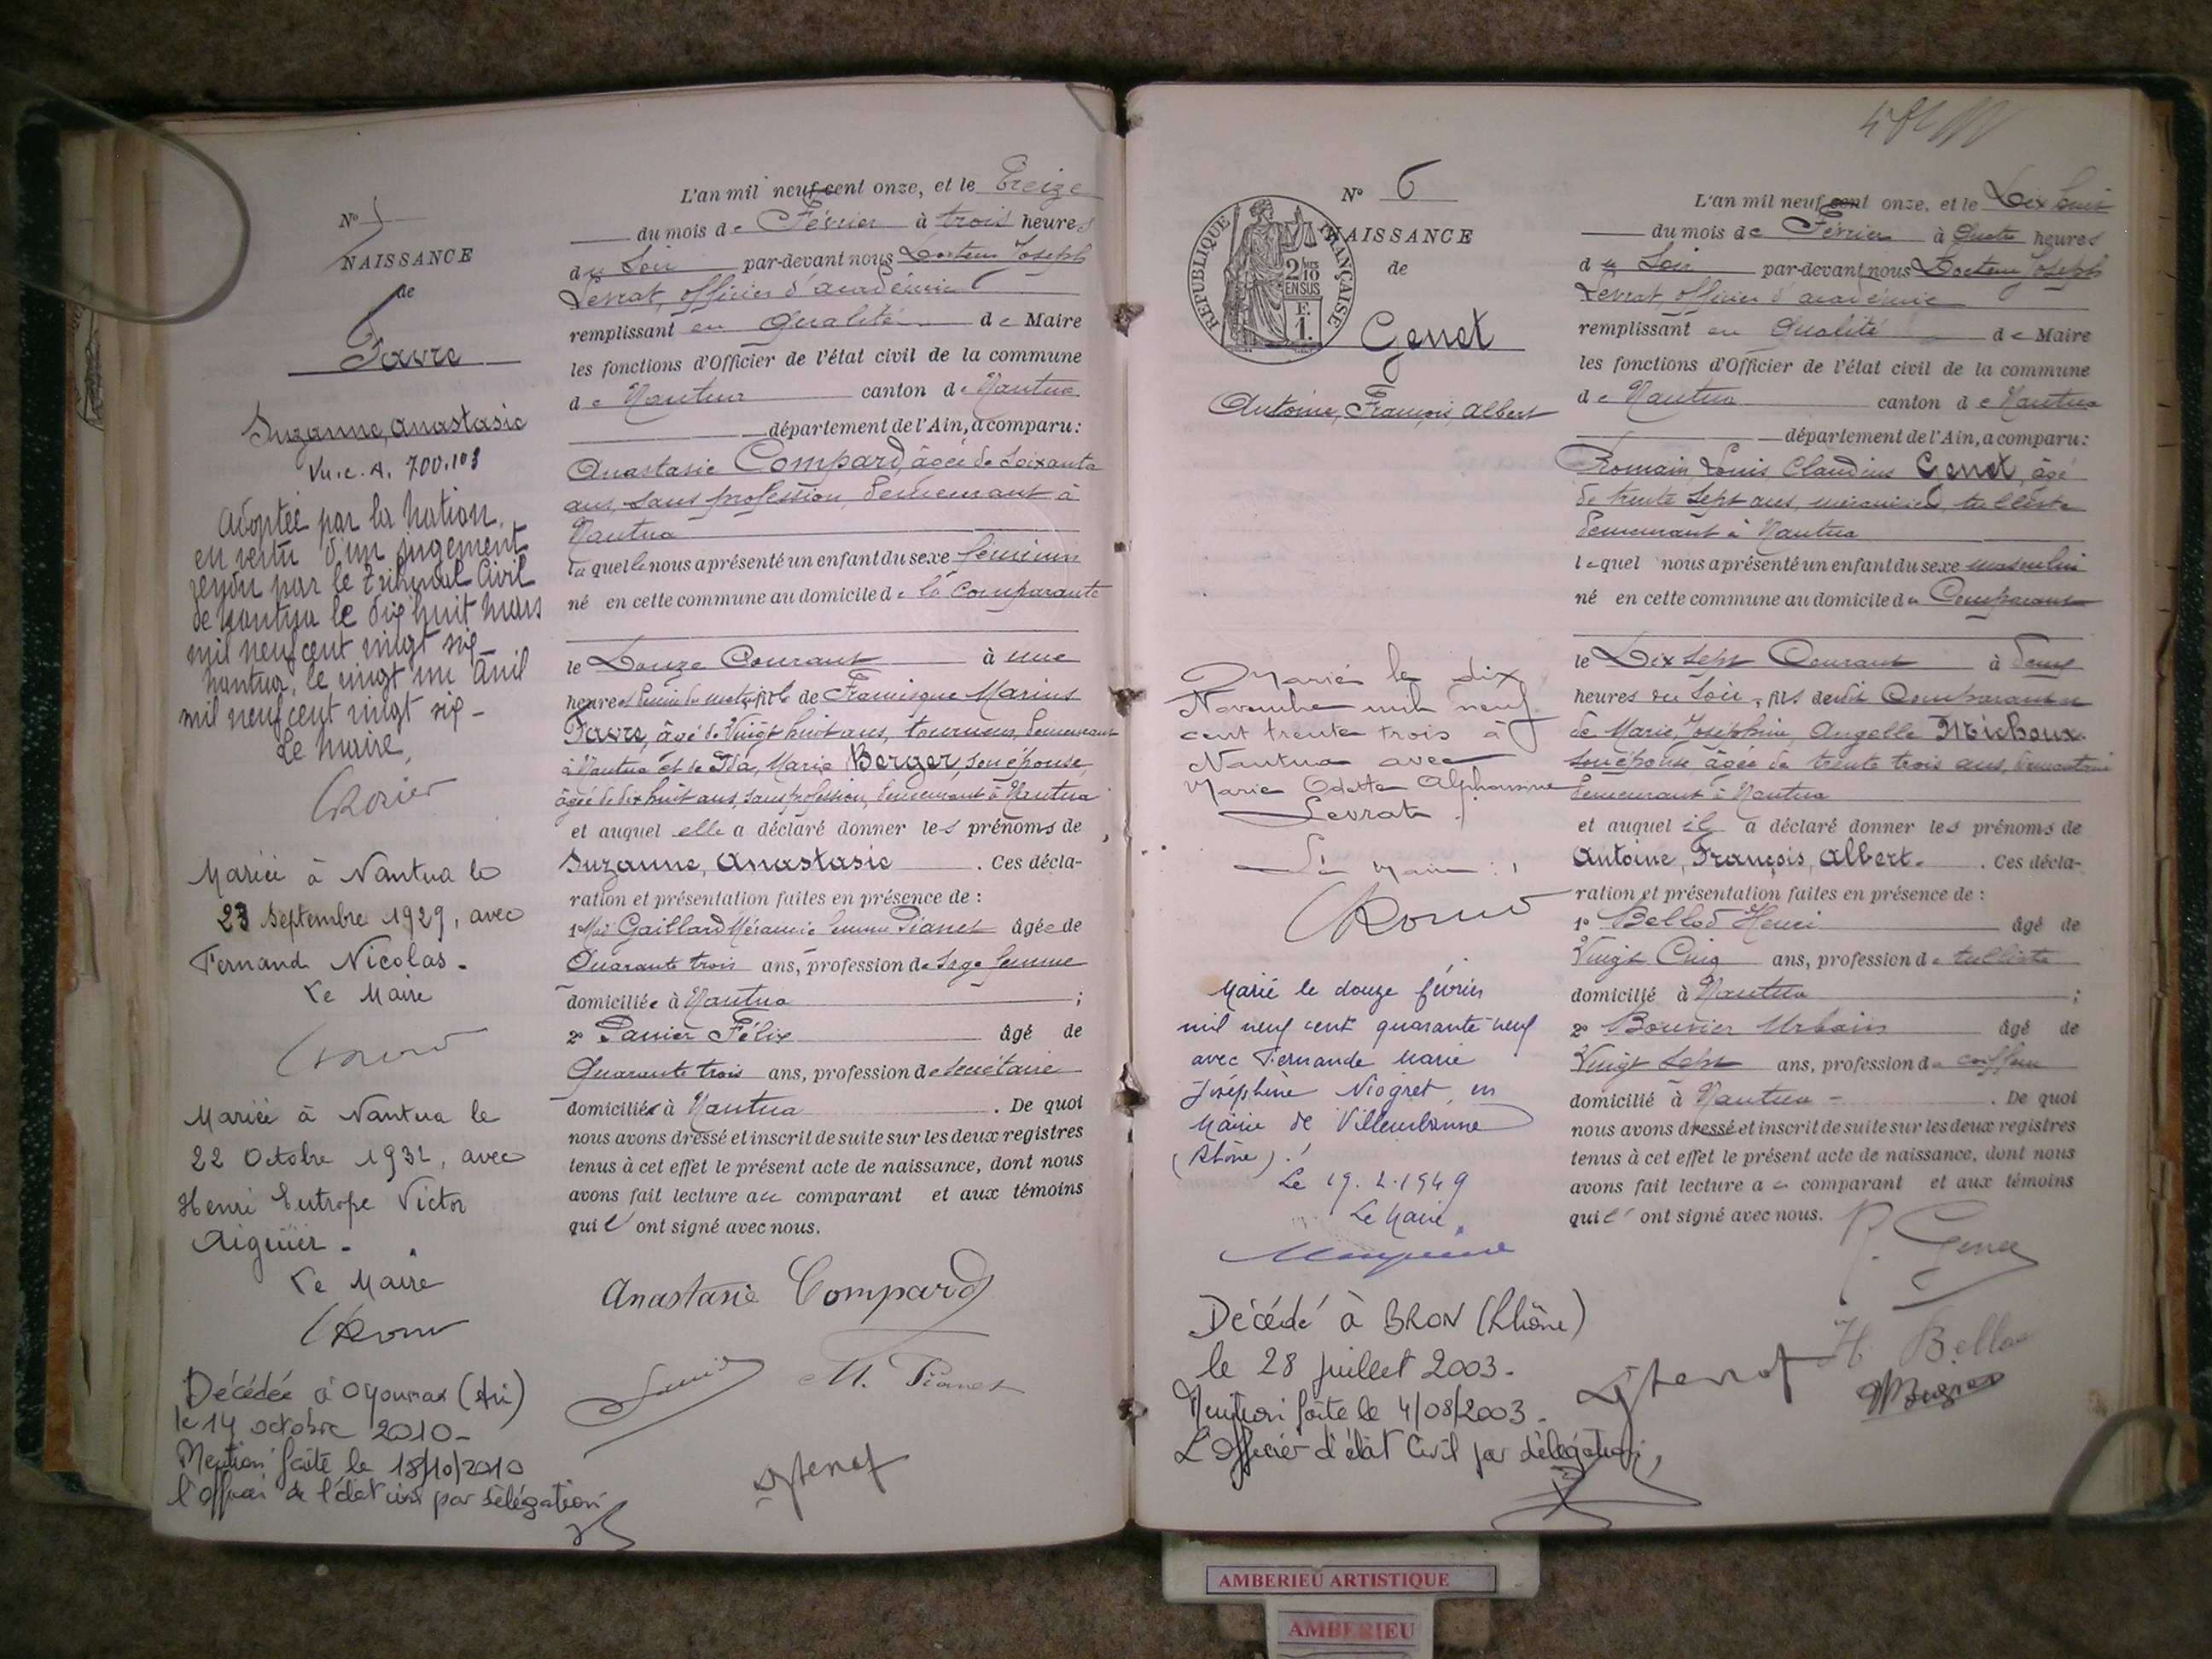 N° 5
NAISSANCE
de
Favre
Suzanne, Anastasie
Vu. e. A. 700.103
Adoptée par la Nation,
en vertu d'un jugement
rendu par le Tribunal Civil
de Nantua le dix huit Mars
mil neuf cent vingt six_
Nantua, le vingt un Avril
mil neuf cent vingt six_
Le Maire,
Mariée à Nantua le
23 septembre 1929, avec
Fernand Nicolas.
Le Maire
Mariée à Nantua le
22 Octobre 1932, avec
Henri Eutrope Victor
Aiguier.
Le Maire
Décédée à Oyonnax (Ain)
le 14 octobre 2010_
Mention faite le 18/10/2010
l'officier de l'état civil par délégation
L'an mil neuf cent onze, et le Treize
du mois de Février à trois heures
du Soir par-devant nous Docteur Joseph
Levrat, officier d'académie
remplissant en qualité de Maire
les fonctions d'Officier de l'état civil de la commune
de Nantua canton de Nantua
département de l'Ain, a comparu:
Anastasie Compard, âgée de Soixante
ans, sans profession, demeurant à
Nantua
la quelle nous a présenté un enfant du sexe féminin
né en cette commune au domicile de la comparante
le Douze Courant à une
heures demie du matin, fille de Francisque Marius
Favre, âgé de Vingt huit ans, tourneur, demeurant
à Nantua et de Ida, Marie Berger, son épouse,
âgée de dix huit ans, sans profession, demeurant à Nantua
et auquel elle a déclaré donner les prénoms de
Suzanne, Anastasie . Ces décla-
ration et présentation faites en présence de :
1° Gaillard Mélanie femme Pianet âgée de
Quarante trois ans, profession de Sage femme
domiciliée à Nantua ;
2° Panier Félix âgé de
Quarante trois ans, profession de secrétaire
domicilié à Nantua . De quoi
nous avons dressé et inscrit de suite sur les deux registres
tenus à cet effet le présent acte de naissance, dont nous
avons fait lecture au comparant et aux témoins
qui l' ont signé avec nous.
Anastasie Compard
M. Pianet
N° 6
NAISSANCE
de
RÉPUBLIQUE FRANÇAISE
2/10
EN SUS
F.
1.
Genet
Antoine, François, Albert
Marié le dix
Novembre mil neuf
cent trente trois à
Nantua avec
Marie Odette Alphonsine
Levrat.
Le Maire :
Marié le douze février
mil neuf cent quarante-neuf
avec Fernande Marie
Joséphine Niogret, en
Mairie de Villeurbanne
(Rhône).
Le 19.2.1949
Le Maire.
Décédé à BRON (Rhône)
le 28 juillet 2003.
Mention faite le 4/08/2003.
L'Officier d'état Civil par délégation,
L'an mil neuf cent onze, et le Dix huit
du mois de Février à Quatre heures
du Soir par-devant nous Docteur Joseph
Levrat, officier d'académie
remplissant en qualité de Maire
les fonctions d'Officier de l'état civil de la commune
de Nantua canton de Nantua
département de l'Ain, a comparu:
Romain, Louis, Claudius Genet, âgé
de trente sept ans, mécanicien, tulliste
demeurant à Nantua
lequel nous a présenté un enfant du sexe masculin
né en cette commune au domicile du Comparant
le Dix Sept Courant à deux
heures du Soir, fils dudit Comparant et
de Marie, Joséphine, Angelle Michoux
son épouse, âgée de trente trois ans,
demeurant à Nantua
et auquel il a déclaré donner les prénoms de
Antoine, François, Albert. . Ces décla-
ration et présentation faites en présence de :
1° Bellod Henri âgé de
Vingt Cinq ans, profession de tulliste
domicilié à Nantua ;
2° Bouvier Urbain âgé de
Vingt Sept ans, profession de coiffeur
domicilié à Nantua . De quoi
nous avons dressé et inscrit de suite sur les deux registres
tenus à cet effet le présent acte de naissance, dont nous
avons fait lecture au comparant et aux témoins
qui l' ont signé avec nous.
R. Genet
H. Bellod
AMBERIEU ARTISTIQUE
AMBERIEU